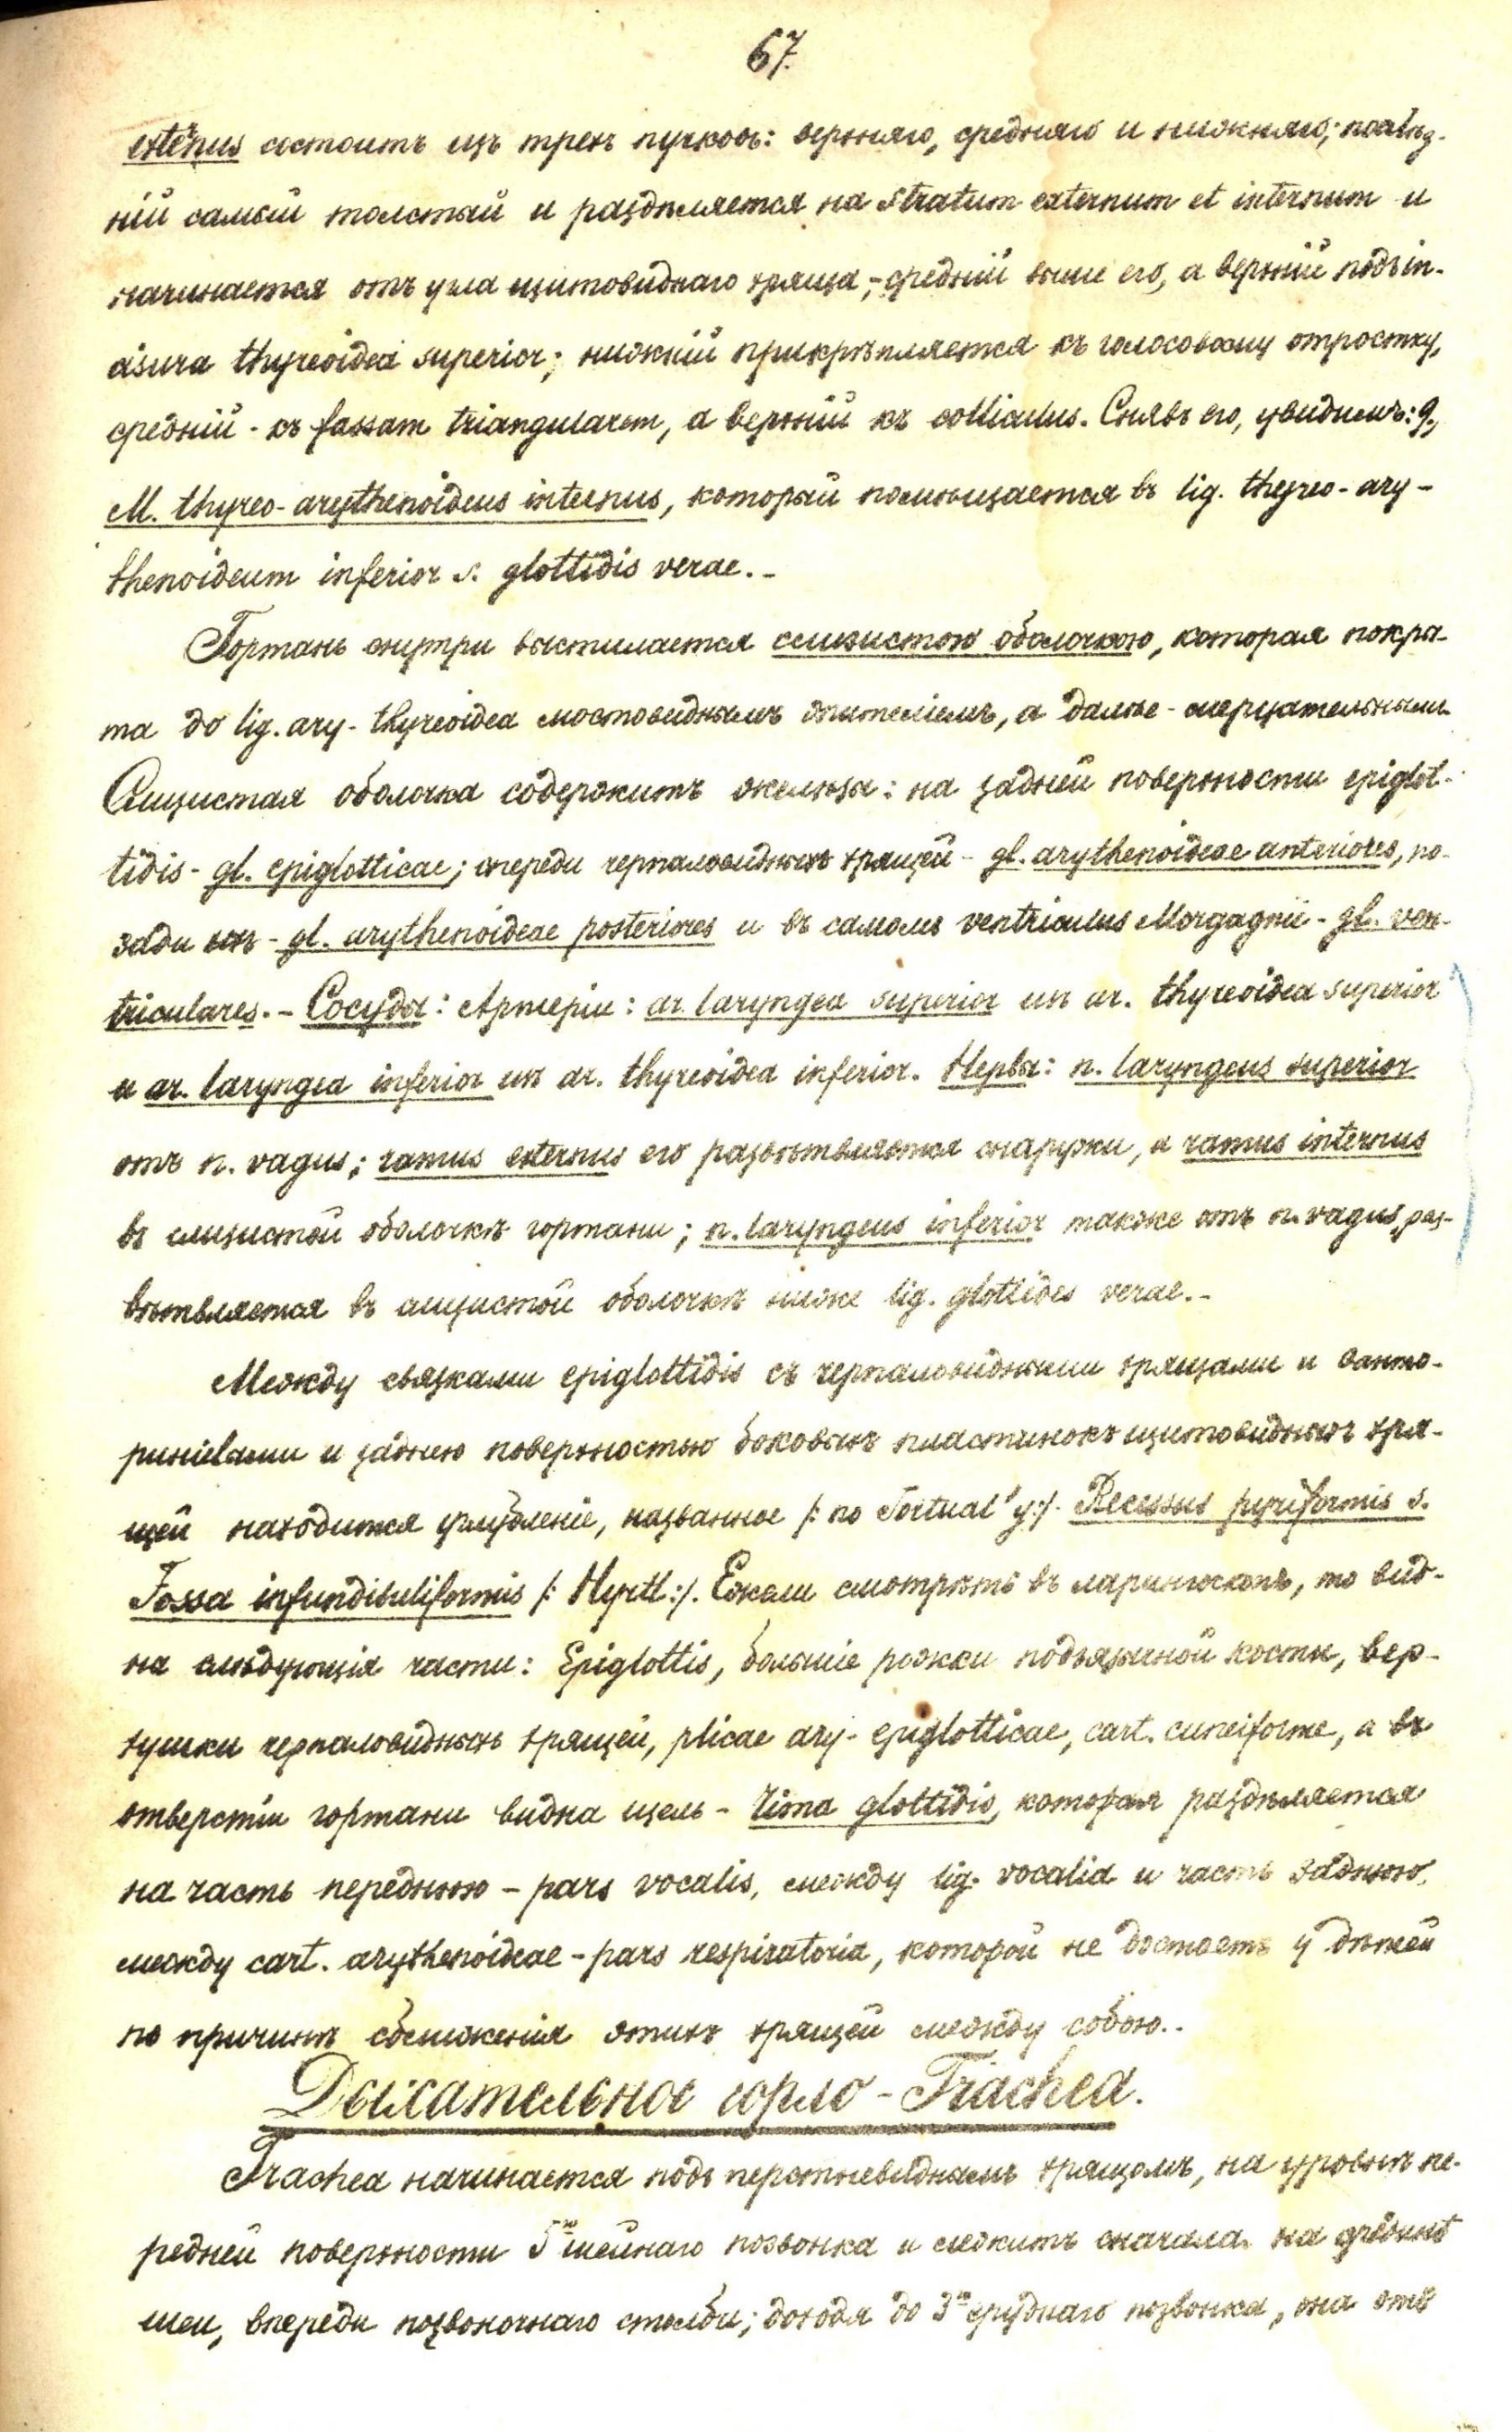 67.
externus состоитъ изъ трехъ пучковъ: верхняго, средняго и нижняго; послѣд-
ній самый толстый и раздѣляется на stratum externum et internum и
начинается отъ угла щитовиднаго хряща, - средній выше его, а верхній подъ in-
cisura thyreoidea superior; нижній прикрѣпляется къ голосовому отростку,
средній - къ fossam triangularem, а верхній къ colliculus. Снявъ его, увидимъ: 9.,
M. thyreo-arythenoideus internus, который помѣщается въ lig. thyreo-ary-
thenoideum inferior s. glottidis verae. -
Гортань внутри выстилается слизистою оболочкою, которая покры-
та до lig. ary-thyreoidea мостовиднымъ эпителіемъ, а далѣе - мерцательнымъ
Слизистая оболочка содержитъ железы: на задней поверхности epiglot-
tidis - gl. epiglotticae; спереди черпаловидныхъ хрящей - gl. arythenoideae anteriores, по-
зади ихъ - gl. arythenoideae posteriores и въ самомъ ventriculus Morgagnii - gl. ven-
triculares. - Сосуды: Артеріи: ar. laryngea superior изъ ar. thyreoidea superior
и ar. laryngea inferior изъ ar. thyreoidea inferior. Нервы: n. laryngeus superior
отъ n. vagus; ramus externus его развѣтвляется снаружи, а ramus internus
въ слизистой оболочкѣ гортани; n. laryngeus inferior также отъ n. vagus, раз-
вѣтвляется въ слизистой оболочкѣ ниже lig. glottides verae. -
Между связками epiglottidis съ черпаловидными хрящами и санто-
риніевыми и заднею поверхностью боковыхъ пластинокъ щитовидныхъ хря-
щей находится углубленіе, названное /: по Tortual'у :/. Recessus pyriformis s.
Fossa infundibuliformis /: Hyrtl :/. Ежели смотрѣть въ ларингоскопъ, то вид-
на слѣдующія части: Epiglottis, большіе рожки подъязычной кости, вер-
хушки черпаловидныхъ хрящей, plicae ary-epiglotticae, cart. cuneiforme, а въ
отверстіи гортани видна щель - rima glottidis, которая раздѣляется
на часть переднюю - pars vocalis, между lig. vocalia и часть заднюю,
между cart. arythenoideae - pars respiratoria, которой не достаетъ у дѣтей
по причинѣ сближенія этихъ хрящей между собою. -
Дыхательное горло - Trachea.
Trachea начинается подъ перстневиднымъ хрящомъ, на уровнѣ пе-
редней поверхности 5го шейнаго позвонка и лежитъ сначала на срединѣ
шеи, впереди позвоночнаго столба; доходя до 3го груднаго позвонка, она отъ